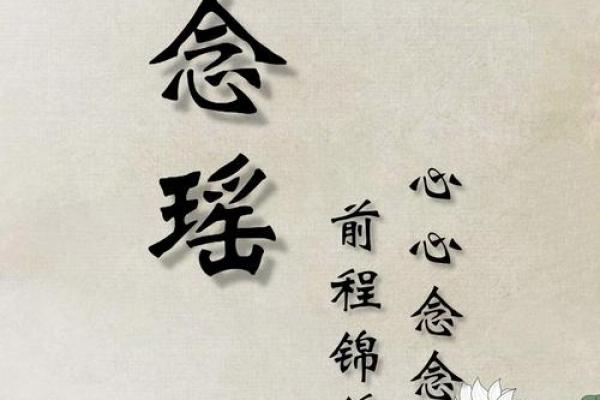 念瑶
心心念念
前程锦